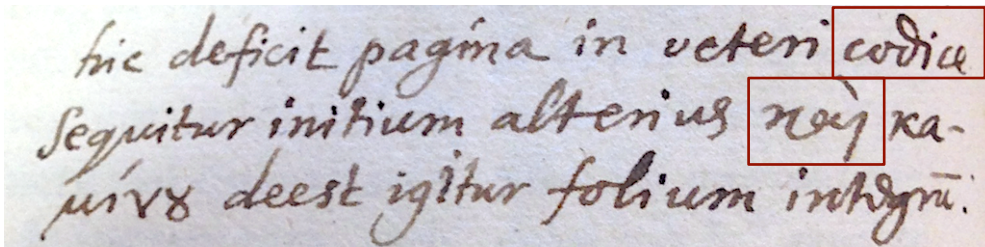 hic deficit pagina in veteri codice
Sequitur initium alterius καὶ κα-
μίνȣ deest igitur folium integrū.